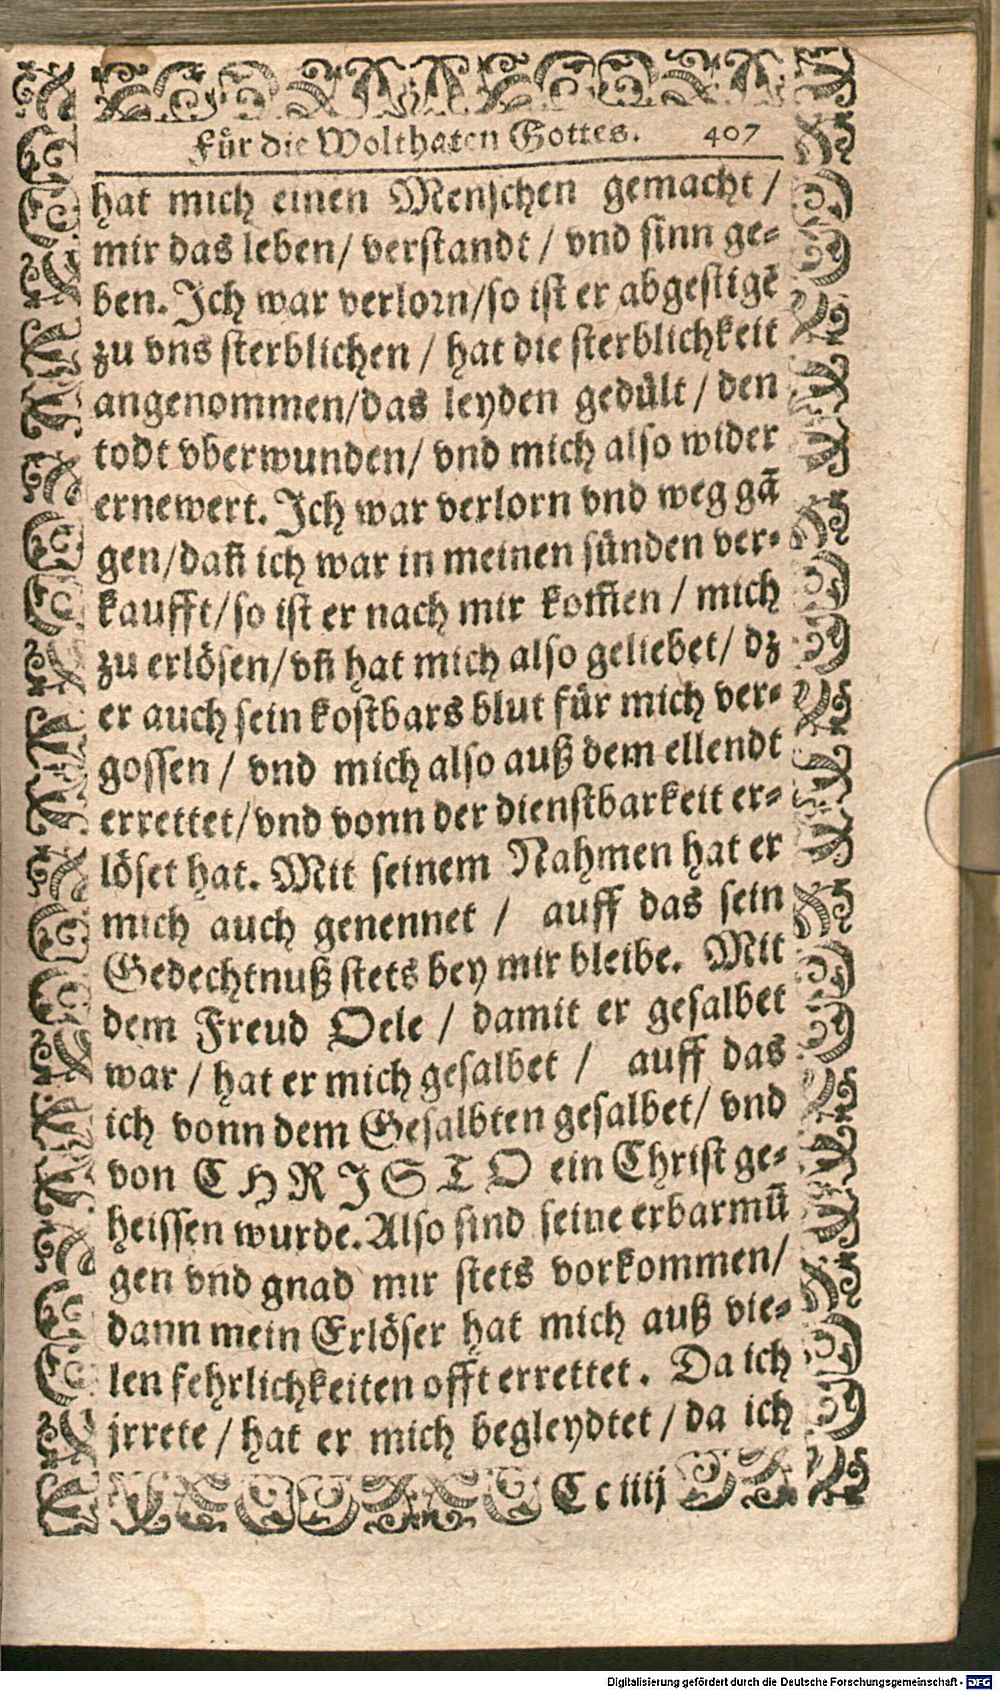 Für die Wolthaten Gottes. 407
hat mich einen Menschen gemacht /
mir das leben/ verstandt / vnd sinn ge-
ben. Ich war verlorn/so ist er abgestigē
zu vns sterblichen / hat die sterblichkeit
angenommen/das leyden gedült / den
todt vberwunden/ vnd mich also wider
ernewert. Ich war verlorn vnd weg gā
gen/dañ ich war in meinen sünden ver-
kaufft/so ist er nach mir kom̃en / mich
zu erlösen/vñ hat mich also geliebet/ dz
er auch sein kostbars blut für mich ver-
gossen / vnd mich also auß dem ellendt
errettet/vnd vonn der dienstbarkeit er-
löset hat. Mit seinem Nahmen hat er
mich auch genennet / auff das sein
Gedechtnuß stets bey mir bleibe. Mit
dem Freud Oele / damit er gesalbet
war / hat er mich gesalbet / auff das
ich vonn dem Gesalbten gesalbet/ vnd
von CHRISTO ein Christ ge-
heissen wurde. Also sind seine erbarmū
gen vnd gnad mir stets vorkommen/
dann mein Erlöser hat mich auß vie-
len fehrlichkeiten offt errettet. Da ich
jrrete / hat er mich begleydtet / da ich
Cc iiij
Digitalisierung gefördert durch die Deutsche Forschungsgemeinschaft - DFG